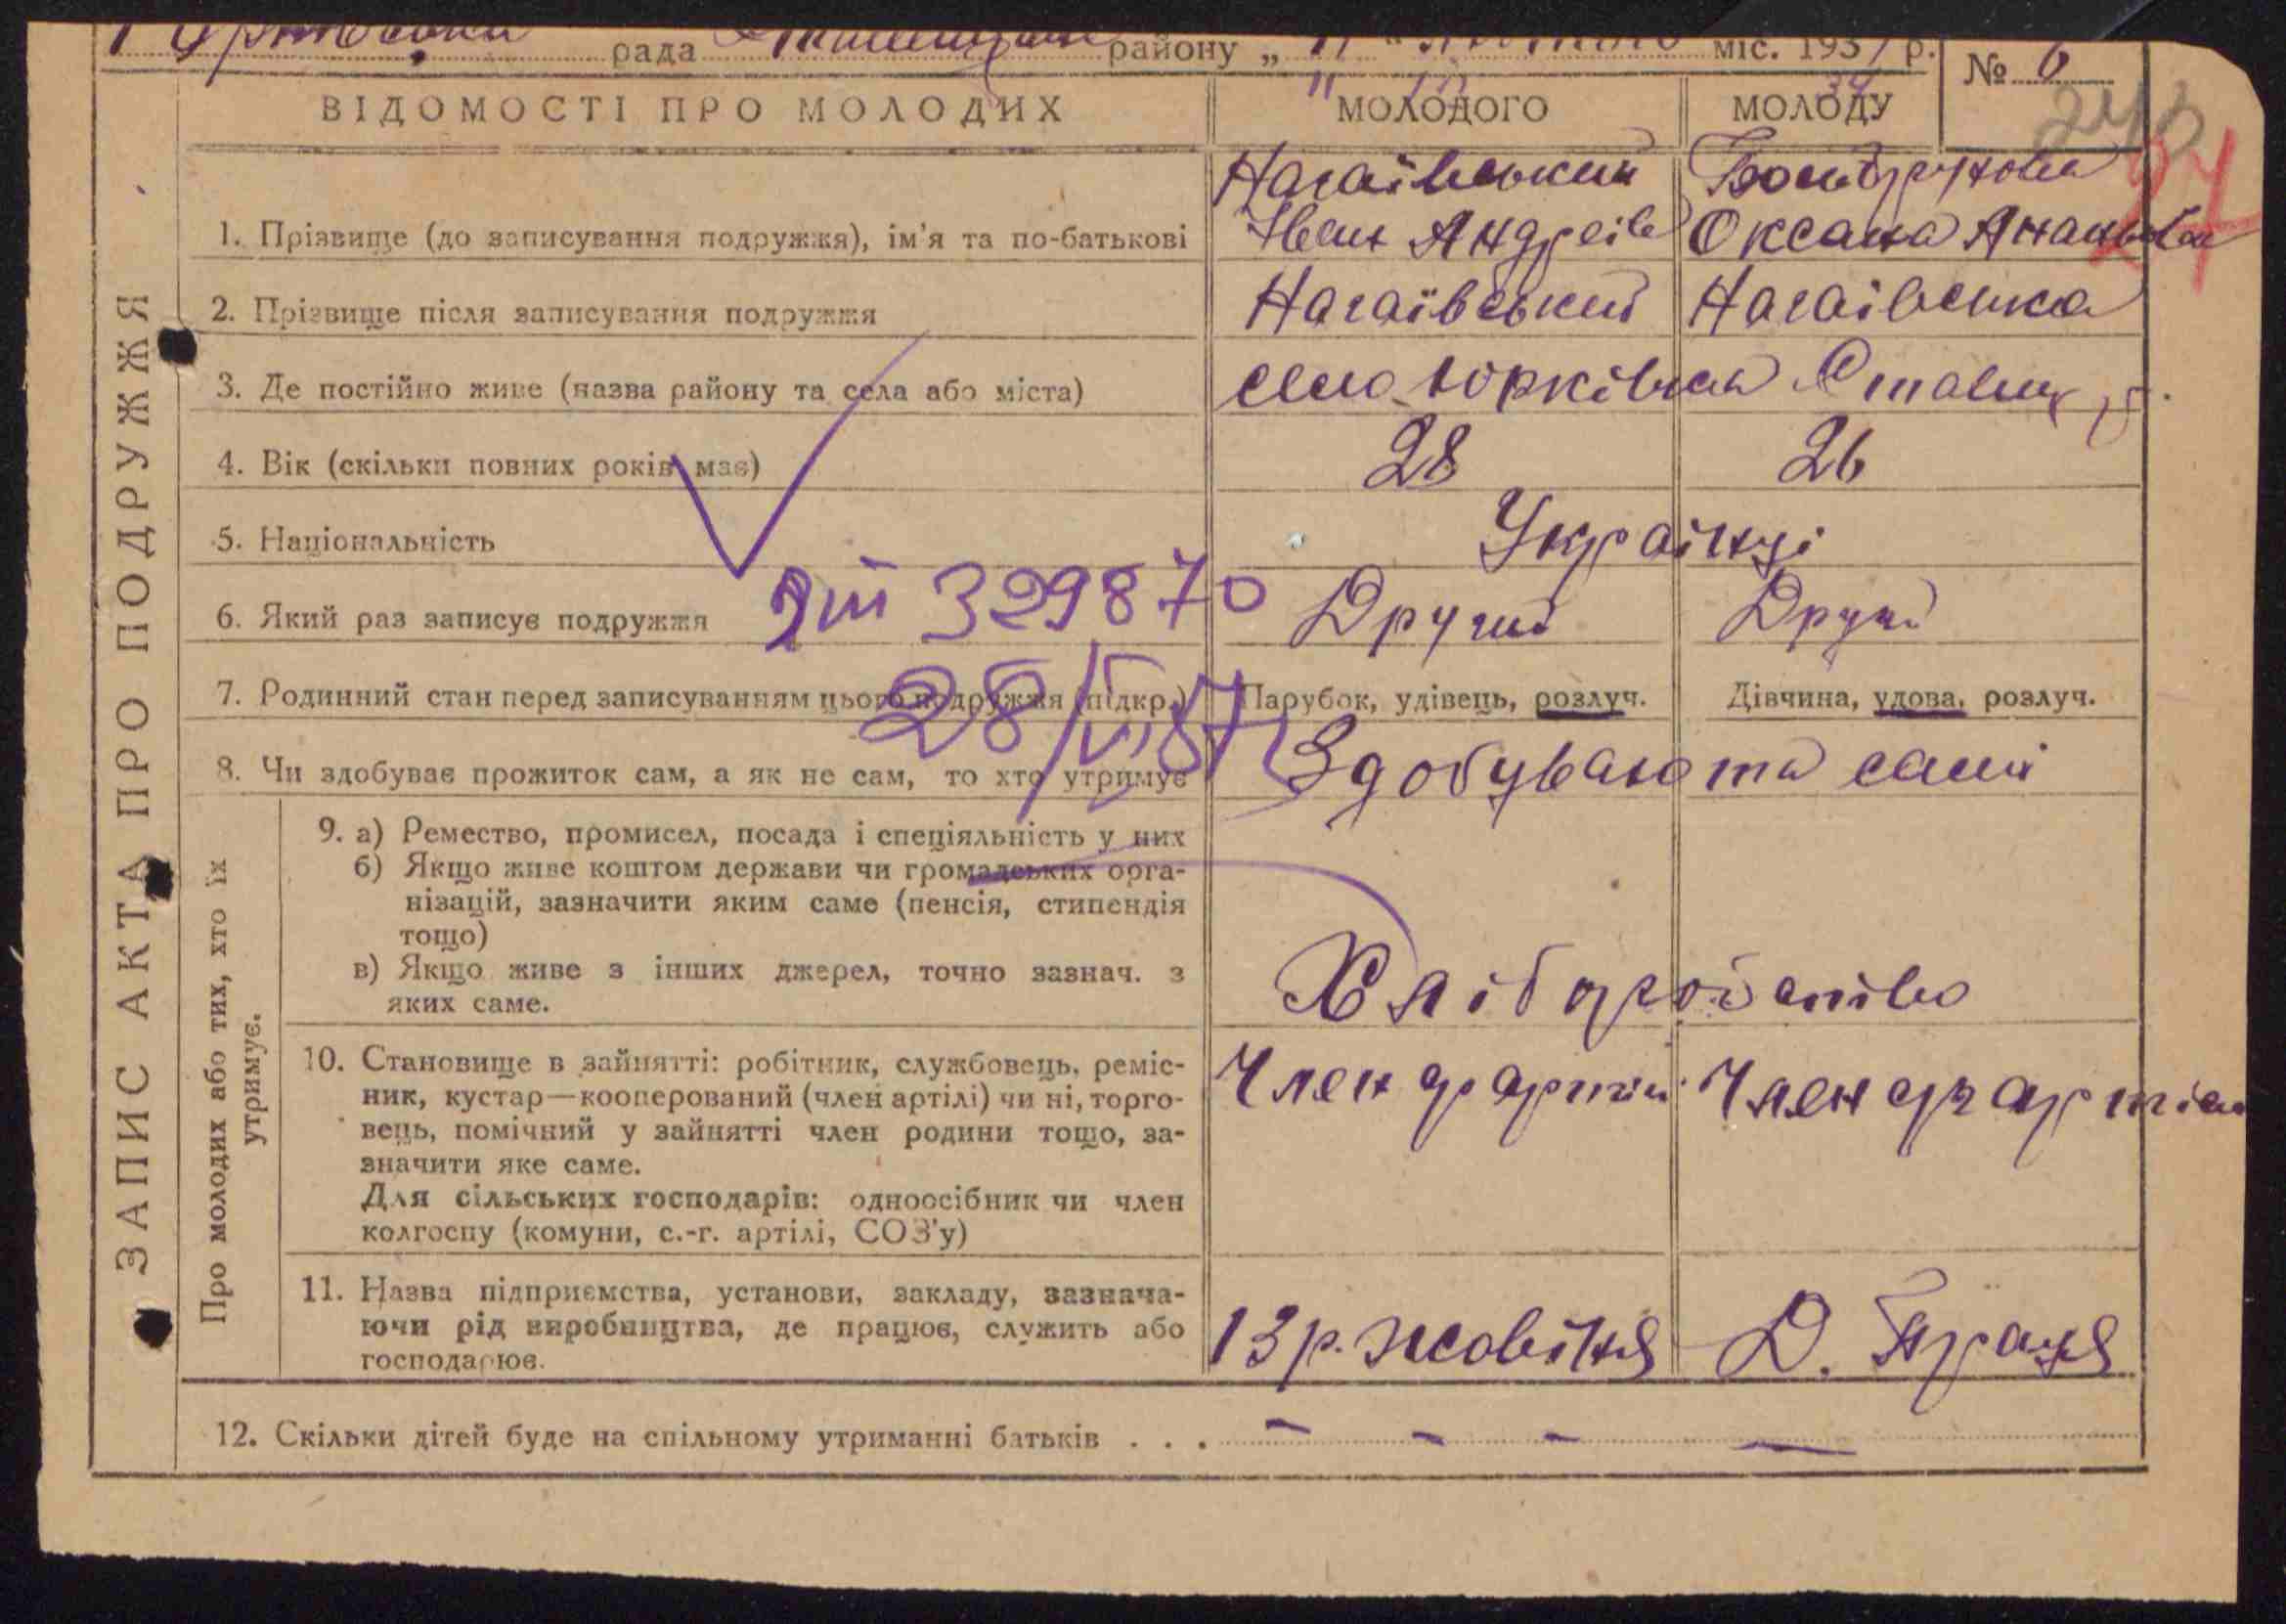 рада району „ 11 “ міс. 193 р. № 6
ВІДОМОСТІ ПРО МОЛОДИХ МОЛОДОГО МОЛОДУ
Нагаївський
1. Прізвище (до записування подружжя), ім'я та по-батькові Іван Андреів Оксана Ананьївна
2. Прізвище після записування подружжя Нагаївський Нагаівська
3. Де постійно живе (назва району та села або міста) село Юрківка
4. Вік (скільки повних років має) 28 26
5. Національність Українці
6. Який раз записує подружжя Другий Другий
329870
7. Родинний стан перед записуванням цього подружжя (підкр.) Парубок, удівець, розлуч. Дівчина, удова, розлуч.
28/VII 87
8. Чи здобуває прожиток сам, а як не сам, то хто утримує Здобувають самі
ЗАПИС АКТА ПРО ПОДРУЖЖЯ
Про молодих або тих, хто їх
утримує.
9. а) Ремество, промисел, посада і спеціяльність у них
б) Якщо живе коштом держави чи громадських орга-
нізацій, зазначити яким саме (пенсія, стипендія
тощо)
в) Якщо живе з інших джерел, точно зазнач. з
яких саме.
10. Становище в зайнятті: робітник, службовець, реміс-
ник, кустар—кооперований (член артілі) чи ні, торго-
вець, помічний у зайнятті член родини тощо, за-
значити яке саме.
Член Член
Для сільських господарів: одноосібник чи член
колгоспу (комуни, с.-г. артілі, СОЗ'у)
11. Назва підприємства, установи, закладу, зазнача-
ючи рід виробництва, де працює, служить або
господарює.
13 р. Жовтня Д. Праця
12. Скільки дітей буде на спільному утриманні батьків . . . – – – —